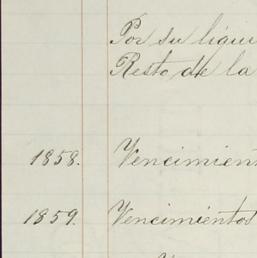 Por su liqui
Resto de la
1858. Vencimien
1859. Vencimientos